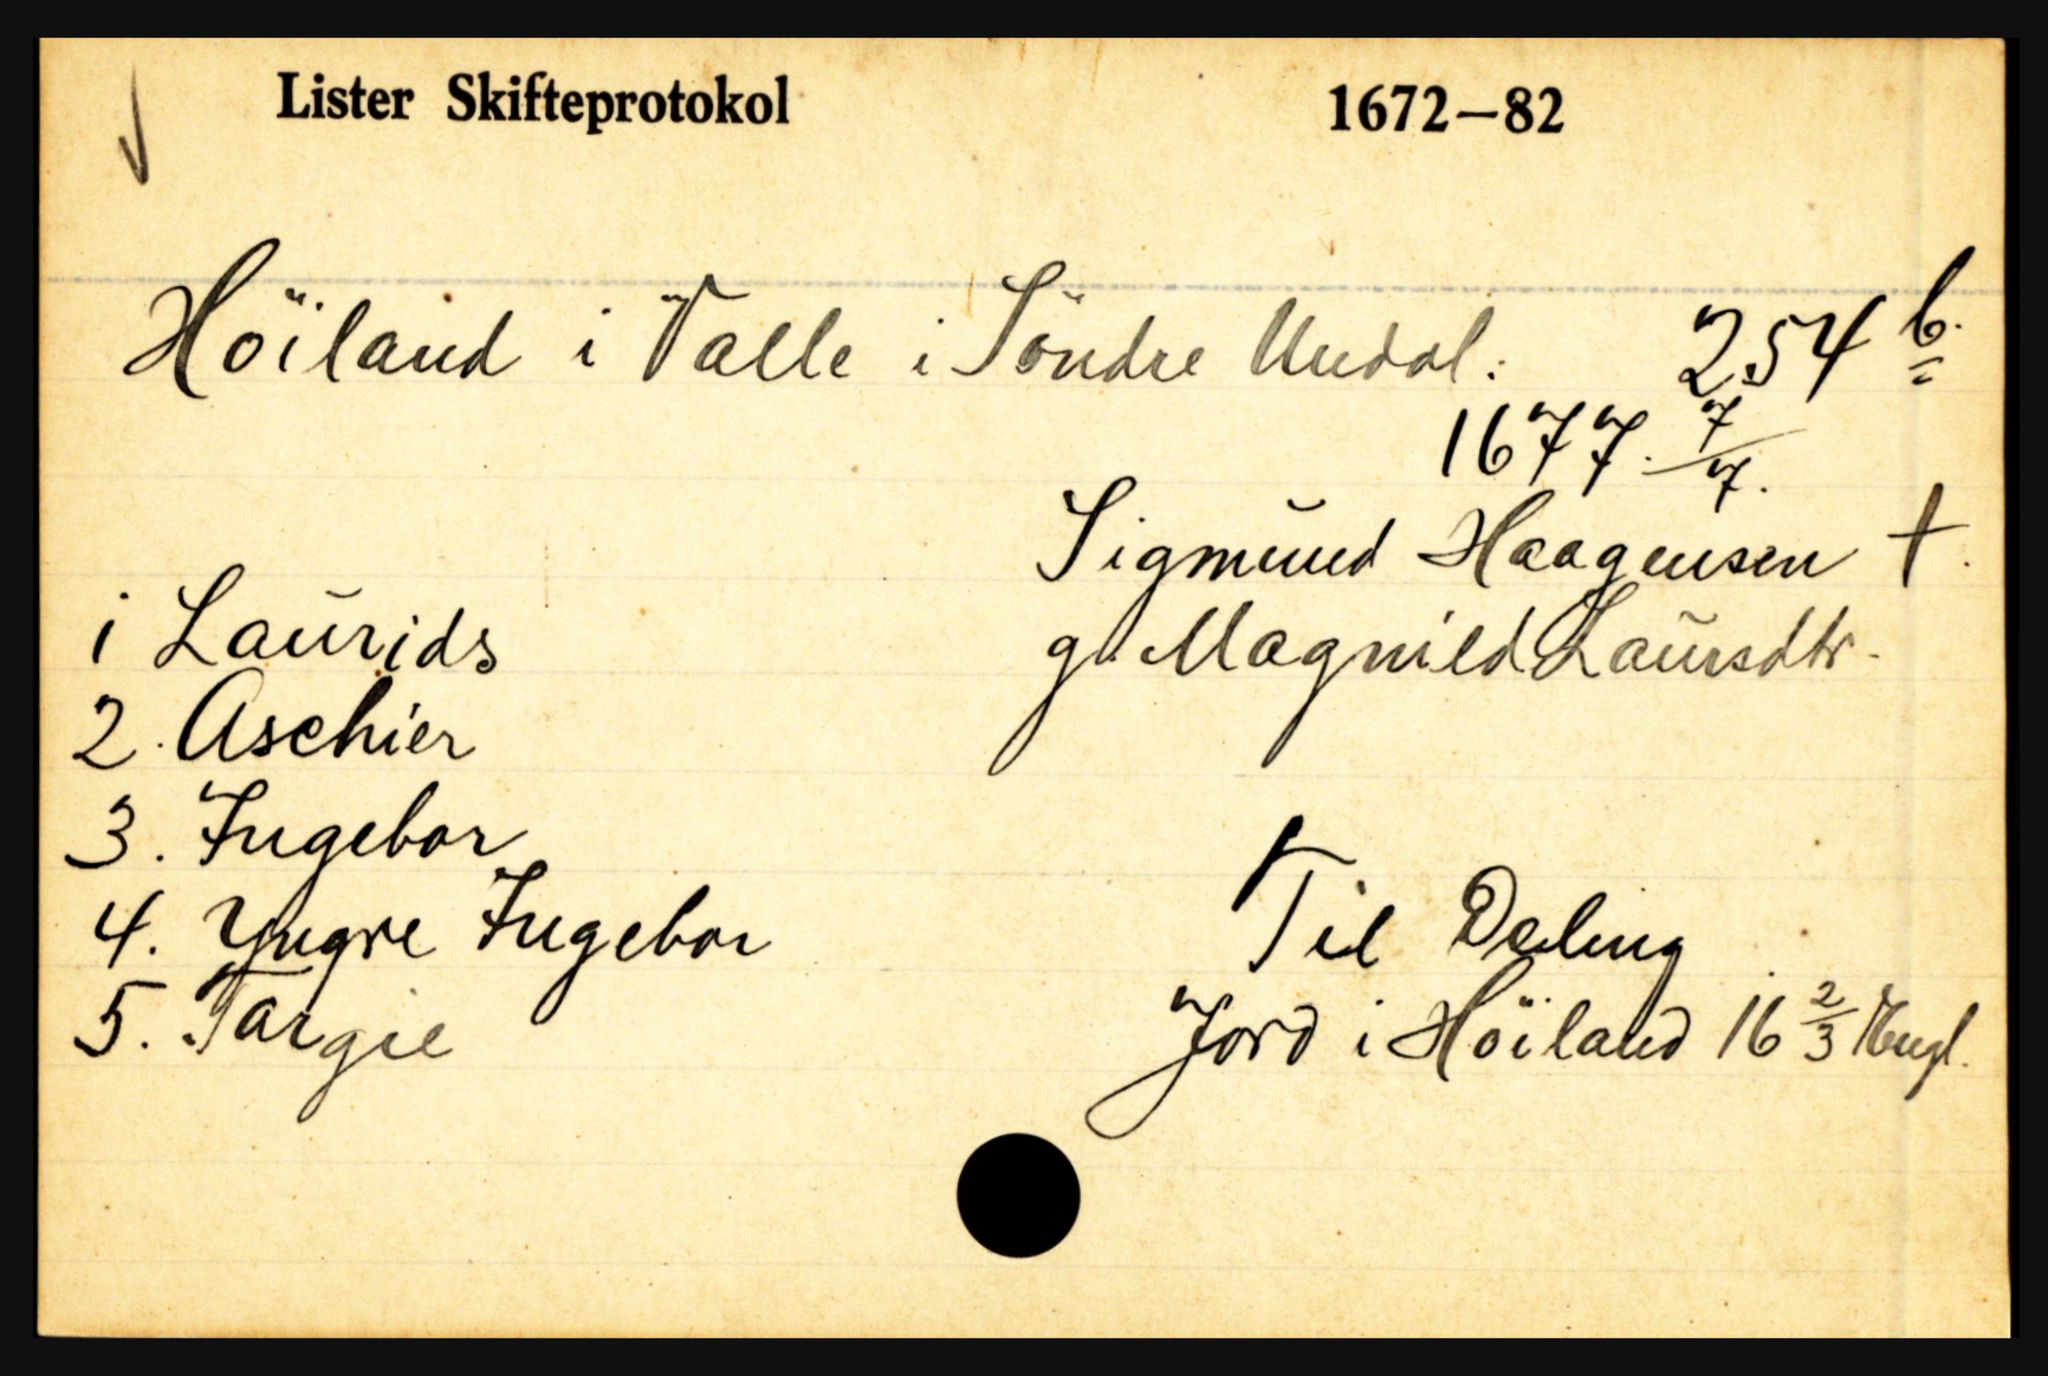 Lister Skifteprotokol 1672—82
Höiland i Valle i Söndre Undal: 254 b.
1677. 7/7.
Sigmund Haagensen †.
g. Magnild Laursdtr.
1 Laurids
2. Aschier
3. Ingebor
4. Yngre Ingebor
5. Targie
Til Deling
Jord i Höiland 16 2/3 Engl.